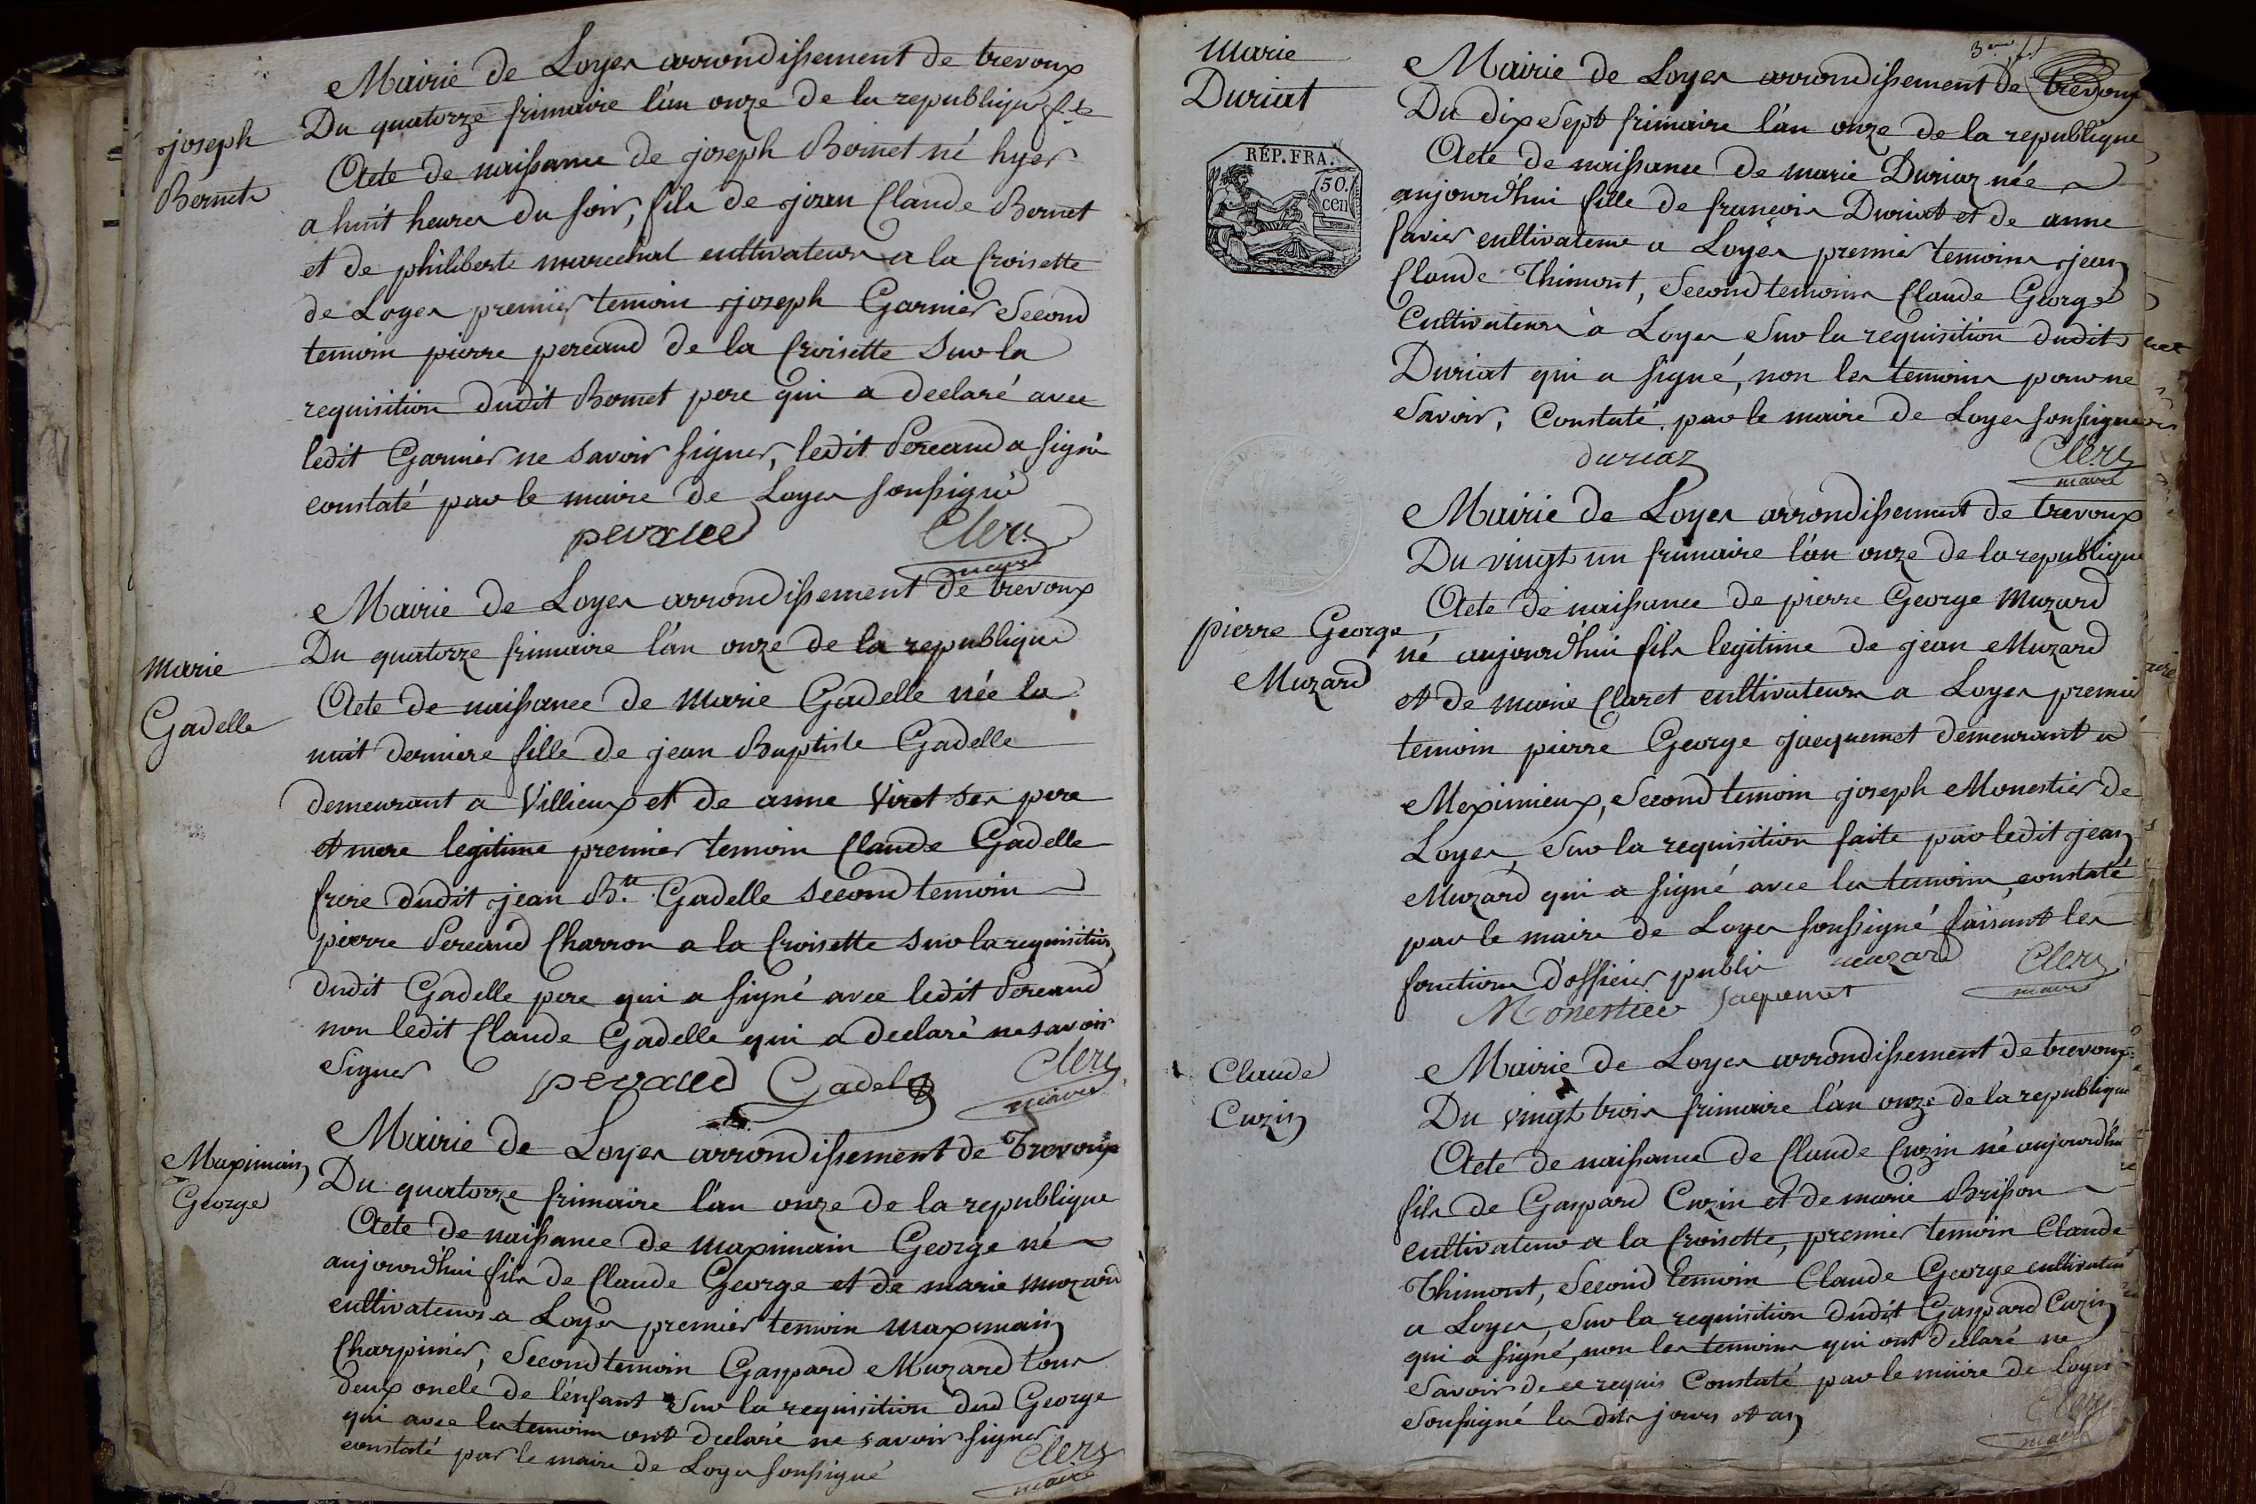 Mairie de Loyes arrondissement de trevoux
Du quatorze frimaire l'an onze de la republique fse
joseph
Bornet
Acte de naissance de joseph Bornet né hyer
a huit heures du soir, fils de jean Claude Bornet
et de philiberte marechal cultivateurs a la Croisette
de Loyes premier temoin joseph Garnier Second
temoin pierre pereaud de la Croisette Sur la
requisition dudit Bornet pere qui a declaré avec
ledit Garnier ne savoir signer, ledit Pereaud a signé
constaté par le maire de Loyes soussigné
peraued Clerc
maire
Mairie de Loyes arrondissement de trevoux
Du quatorze frimaire l'an onze de la republique
marie
Gadelle
Acte de naissance de Marie Gadelle née la
nuit derniere fille de jean Baptiste Gadelle
demeurant a Villieux et de anne Viret ses pere
et mere legitime premier temoin Claude Gadelle
frere dudit jean Bte. Gadelle second temoin
pierre Pereaud Charron a la Croisette sur la requisition
dudit Gadelle pere qui a signé avec ledit Pereaud
non ledit Claude Gadelle qui a declaré ne savoir
signer peraued Gadel Clerc
maire
Mairie de Loyes arrondissement de Trevoux
Du quatorze frimaire l'an onze de la republique
Maximain
George
Acte de naissance de maximain George né
aujourd'hui fils de Claude George et de marie muzard
cultivateurs a Loyes premier temoin maximain
Charpinier, Second temoin Gaspard Muzard tous
deux oncle de l'enfant Sur la requisition dud George
qui avec les temoins ont declaré ne savoir signer
constaté par le maire de Loyes soussigné
Clerc
maire
3eme ft
Marie
Duriat
RÉP. FRA.
50.
cen
Mairie de Loyes arrondissement de trevoux
Du dix Sept frimaire l'an onze de la republique
Acte de naissance de marie Duriaz née
aujourd'hui fille de françois Duriat et de anne
favier cultivateurs a Loyes premier temoins jean
Claude Thimont, Second temoins Claude George
Cultivateurs à Loyes Sur la requisition dudit
Duriat qui a signé, non les temoins pour ne
Savoir, Constaté par le maire de Loyes soussigné
duriaz Clerc
maire
Mairie de Loyes arrondissement de trevoux
Du vingt un frimaire l'an onze de la republique
pierre George
Muzard
Acte de naissance de pierre George Muzard
né aujourd'hui fils legitime de jean Muzard
et de marie Claret cultivateurs a Loyes premier
temoin pierre George jacquemet demeurant a
Meximieux, Second temoin joseph Monestier de
Loyes, Sur la requisition faite par ledit jean
Muzard qui a signé avec les temoins, constaté
par le maire de Loyes soussigné faisant les
fonctions d'officier public muzard Clerc
Monestier Jaquemet maire
Claude
Cuzin
Mairie de Loyes arrondissement de trevoux
Du vingt trois frimaire l'an onze de la republique
Acte de naissance de Claude Cuzin né aujourd'hui
fils de Gaspard Cuzin et de marie Brisson
cultivateurs a la Croisette, premier temoin Claude
Thimont, Second temoin Claude George cultivateurs
a Loyes, Sur la requisition dudit Gaspard Cuzin
qui a signé, non les temoins qui ont declaré ne
Savoir de ce requis Constaté par le maire de Loyes
soussigné les dits jours et an
Clerc
maire